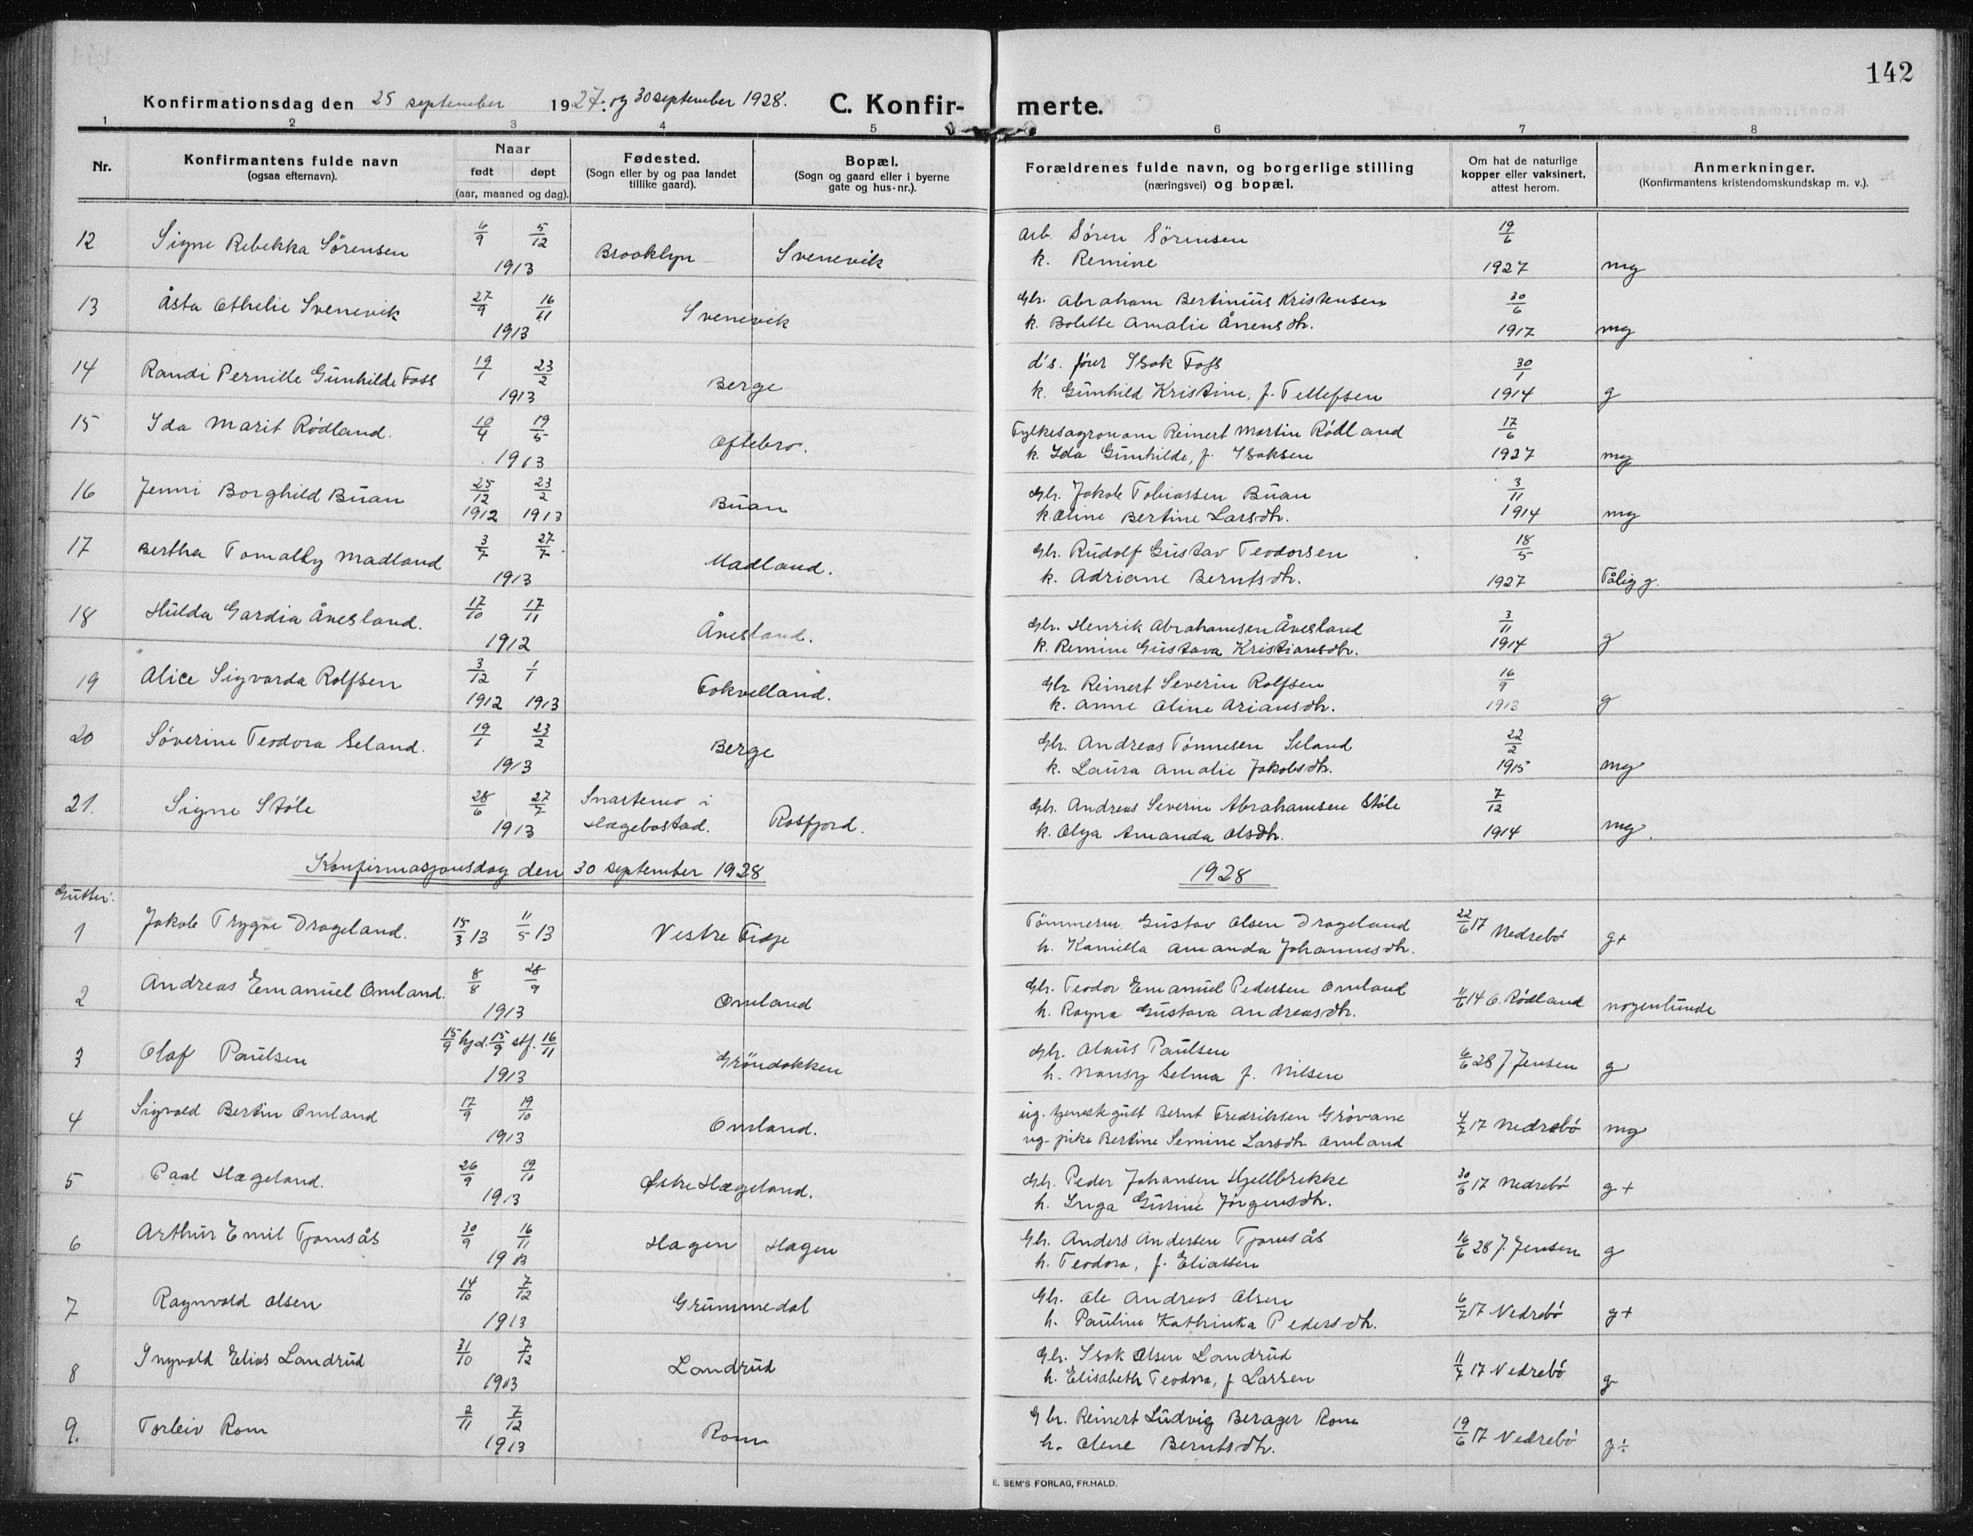 142
Konfirmationsdag den 25 september 1927. og 30 september 1928. C. Konfirmerte.
1 2 3 4 5 6 7 8
Nr. Konfirmantens fulde navn (ogsaa efternavn). Naar født døpt (aar, maaned og dag). Fødested. (Sogn eller by og paa landet tillike gaard). Bopæl. (Sogn og gaard eller i byerne gate og hus-nr.). Forældrenes fulde navn, og borgerlige stilling (næringsvei) og bopæl. Om hat de naturlige kopper eller vaksinert, attest herom. Anmerkninger. (Konfirmantens kristendomskundskap m. v.).
12 Signe Rebekka Sörensen 6/9 5/12 1913 Brooklyn Svenevik arb. Sören Sörensen 19/6
k. Remine 1927 mg
13 Åsta Othelie Svenevik 27/9 16/11 1913 Svenevik Gbr. Abraham Bertinius Kristensen 30/6
k. Bolette Amalie Ånensdtr. 1917 mg
14 Randi Pernille Gunhilde Foss 19/1 23/2 1913 Berge d's. four Isak Foss 30/1
k. Gunhild Kristine, f. Tellefsen 1914 g
15 Ida Marit Rødland. 10/4 19/5 1913 Oftebro. Fylkesagronom Reinert Martin Rödland 17/6
k. Ida Gunhilde, f. Isaksen 1927 mg
16 Jenni Borghild Buan 25/12 1912 23/2 1913 Buan Gbr. Jakob Tobiassen Buan 3/11
k. Oline Bertine Larsdtr. 1914 mg
17 Bertha Tomalby Madland 3/7 27/7 1913 Madland. Gbr. Rudolf Gustav Teodorsen 18/5
k. Adriane Berntsdtr. 1927 Tålig g.
18 Hulda Gardia Ånesland. 17/10 17/11 1912 Ånesland. Gbr. Henrik Abrahamsen Ånesland 3/11
k. Remine Gustava Kristiansdtr. 1914 g
19 Alice Sigvarda Rolfsen 3/12 1912 1/1 1913 Fokvelland. Gbr Reinert Severin Rolfsen 16/9
k. Anne Oline Ariansdtr. 1913 g
20 Söverine Teodora Seland. 19/1 23/2 1913 Berge Gbr. Andreas Tönnesen Seland 22/2
k. Laura Amalie Jakobsdtr. 1915 mg
21. Signe Støle 28/6 27/7 1913 Snartemo i Hægebostad. Rosfjord. Gbr. Andreas Severin Abrahamsen Støle 7/12
k. Olga Amanda Olsdtr. 1914 mg.
Konfirmasjonsdag den 30 september 1928 1928
Gutter:
1 Jakob Trygve Drageland. 15/3 13 11/5 13 Vestre Fidje Tömmerm. Gustav Olsen Drageland 22/6 17 Nedrebö g+
h. Kamilla Amanda Johannesdtr.
2 Andreas Emanuel Omland. 8/8 28/9 1913 Omland Gbr. Teodor Emanuel Pedersen Omland 11/6 14 G. Rødland nogenlunde
h. Ragna Gustava Andreasdtr.
3 Olaf Paulsen 15/9 hjd. 15/9 stf. 16/11 1913 Gröndokken Gbr. Olaus Paulsen 6/6 28 J Jensen g
h. Nansy Selma f. Nilsen
4 Sigvald Bertin Omland 17/9 19/10 1913 Omland. ug. tjenstegutt Bernt Fredriksen Grövane 4/7 17 Nedrebö mg
ug. pike Bertine Semine Larsdtr Omland
5 Paal Hægeland. 26/9 19/10 1913 Østre Hægeland. Gbr. Peder Johansen Hjellbrekke 30/6 17 Nedrebö g+
h. Inga Gurine Jörgensdtr.
6 Arthur Emil Tjomsås 30/9 16/11 1913 Hagen Hagen Gbr. Anders Andersen Tjomsås 16/6 28 J. Jensen g
h. Teodora, f. Eliassen
7 Ragnvald Olsen 14/10 7/12 1913 Grummedal Gbr. Ole Andreas Olsen 6/7 17 Nedrebö g+
h. Pauline Kathinka Pedersdtr.
8 Ingvald Elias Landrud 31/10 7/12 1913 Landrud Gbr. Isak Olsen Landrud 11/7 17 Nedrebö g
h. Elisabeth Teodora, f Larsen
9. Torleiv Rom 2/11 7/12 1913 Rom Gbr. Reinert Ludvig Berager Rom 19/6 17 Nedrebö g÷
h. Olene Berntsdtr.
E. SEM'S FORLAG, FR.HALD.